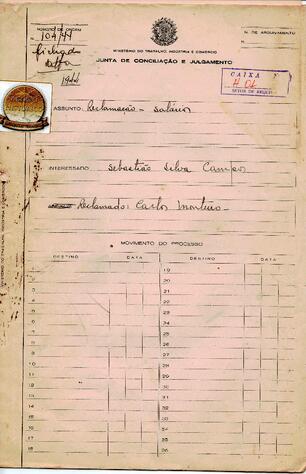 NÚMERO DE ORDEM
N. 104/44
Fichado
1944
N. DE ARQUIVAMENTO
N.
MINISTÉRIO DO TRABALHO, INDÚSTRIA E COMÉRCIO
JUNTA DE CONCILIAÇÃO E JULGAMENTO
CAIXA
SETOR DE ARQUIVO
ASSUNTO: Reclamação - salários
INTERESSADO Sebastião Silva Campos
Reclamado: Carlos Monteiro -
MOVIMENTO DO PROCESSO
DESTINO DATA DESTINO DATA
1 19
2 20
3 21
4 22
5 23
6 24
7 25
8 26
9 27
10 28
11 29
12 30
13 31
14 32
15 33
16 34
17 35
18 36